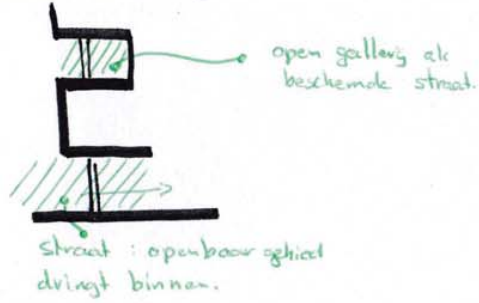 open gallerij als
beschemde straat.
straat : openbaar gebied
dringt binnen.